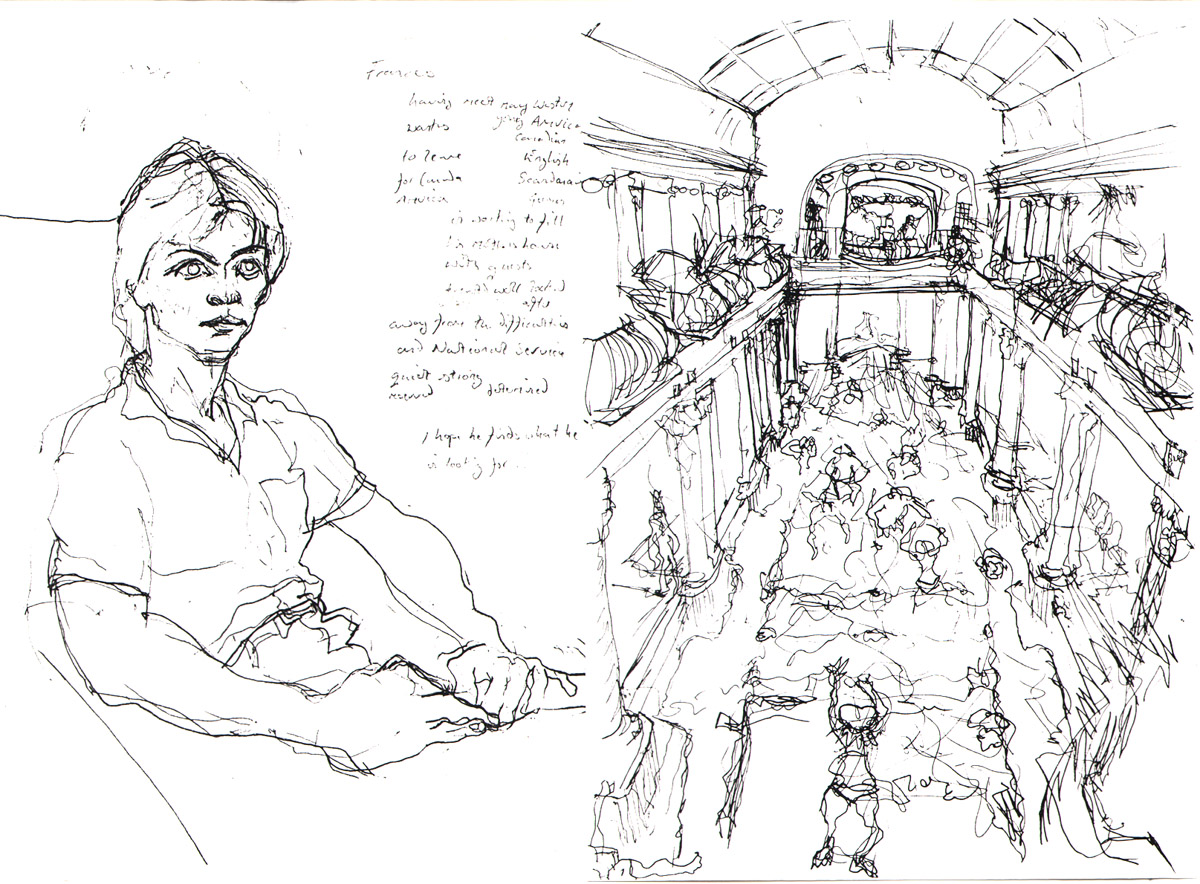 having meet many Western
wants young American
Canadian
to leave English
for Canada
America
is working to fill
his mothers house
with guests
well looked
after
away from the difficulties
and National Service
quiet strong
reserved determined
I hope he finds what he
is looking for ...